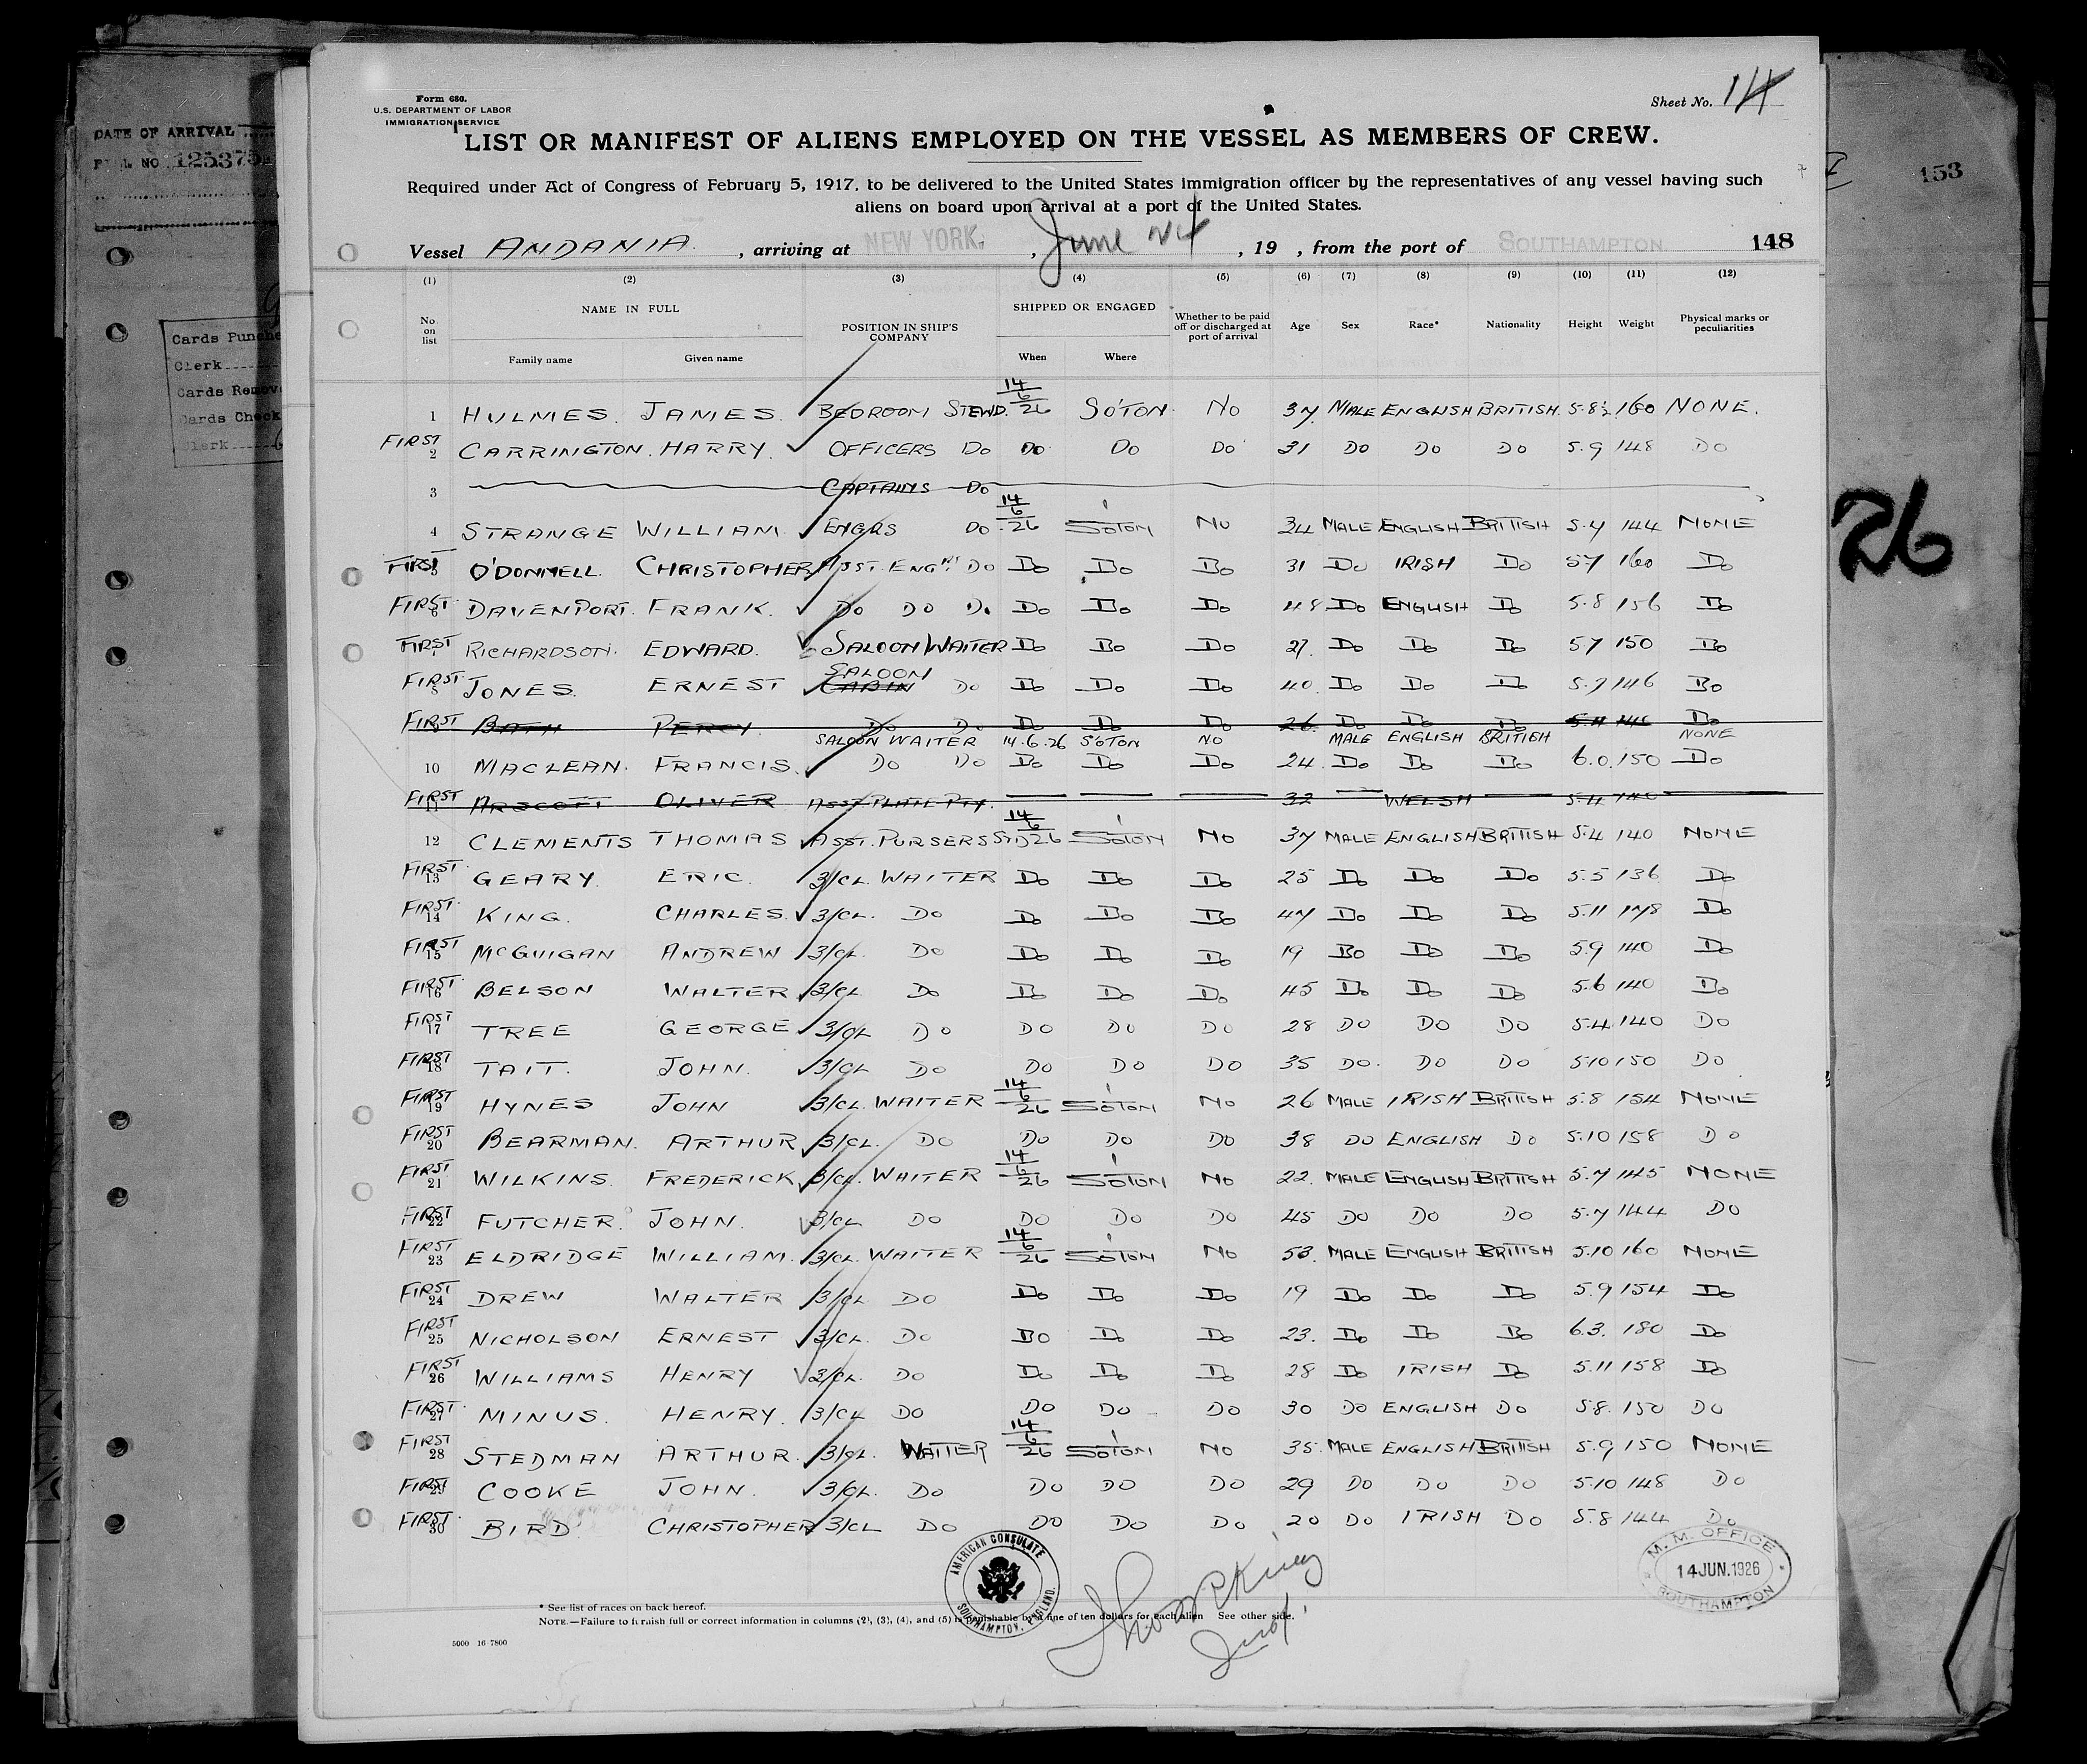 Form 680.
U.S. DEPARTMENT OF LABOR
IMMIGRATION SERVICE
Sheet No. 14
DATE OF ARRIVAL
NO. 125375
LIST OR MANIFEST OF ALIENS EMPLOYED ON THE VESSEL AS MEMBERS OF CREW.
Required under Act of Congress of February 5, 1917, to be delivered to the United States immigration officer by the representatives of any vessel having such
aliens on board upon arrival at a port of the United States.
153
Vessel ANDANIA, arriving at NEW YORK, June 24, 19 , from the port of SOUTHAMPTON. 148
(1) (2) (3) (4) (5) (6) (7) (8) (9) (10) (11) (12)
No. on list NAME IN FULL Family name Given name POSITION IN SHIP'S COMPANY SHIPPED OR ENGAGED When Where Whether to be paid off or discharged at port of arrival Age Sex Race* Nationality Height Weight Physical marks or peculiarities
Cards Punche
Clerk
Cards Remov
Cards Check
Clerk
26
1 HULMES. JAMES. BEDROOM STEWD. 14/6/26 SO'TON NO 37. MALE ENGLISH BRITISH. 5-8½ 160 NONE.
FIRST 2 CARRINGTON. HARRY. OFFICERS DO DO DO DO 31 DO DO DO 5.9 148 DO
3 CAPTAINS DO
4 STRANGE WILLIAM. ENGRS DO 14/6/26 SO'TON NO 34 MALE ENGLISH BRITISH 5.4 144 NONE
FIRST 5 O'DONNELL. CHRISTOPHER ASST. ENGRS DO DO DO DO 31 DO IRISH DO 5.7 160 DO
FIRST 6 DAVENPORT. FRANK. DO DO DO DO DO DO 48 DO ENGLISH DO 5.8 156 DO
FIRST RICHARDSON. EDWARD. SALOON WAITER DO DO DO 27. DO DO DO 5.7 150 DO
SALOON
FIRST 8 JONES. ERNEST CABIN DO DO DO DO 40. DO DO DO 5.7 146 DO
FIRST BATH PERCY. DO DO DO DO DO 26. DO DO DO DO
SALOON WAITER 14.6.26 SO'TON NO MALE ENGLISH BRITISH NONE
10 MACLEAN. FRANCIS. DO DO DO DO DO 24. DO DO DO 6.0. 150 DO
FIRST 11 ARSCOTT OLIVER ASST PLATE PTY. 32 WELSH 5.4 140
12 CLEMENTS THOMAS ASST. PURSERS STD 14/6/26 SO'TON NO 37 MALE ENGLISH BRITISH 5.4 140 NONE
FIRST 13 GEARY. ERIC. 3/CL. WAITER DO DO DO 25 DO DO DO 5.5 136 DO
FIRST 14 KING. CHARLES. 3/CL. DO DO DO DO 47 DO DO DO 5.11 178 DO
FIRST 15 McGUIGAN ANDREW 3/CL. DO DO DO DO 19 DO DO DO 5.9 140 DO
FIRST 16 BELSON WALTER 3/CL DO DO DO DO 45 DO DO DO 5.6 140 DO
FIRST 17 TREE GEORGE 3/CL DO DO DO DO 28 DO DO DO 5.4. 140 DO
FIRST 18 TAIT. JOHN. 3/CL DO DO DO DO 35 DO. DO DO 5.10 150 DO
FIRST 19 HYNES JOHN 3/CL. WAITER 14/6/26 SO'TON NO 26 MALE IRISH BRITISH 5.8 154 NONE
FIRST 20 BEARMAN. ARTHUR 3/CL. DO DO DO DO 38 DO ENGLISH DO 5.10 158 DO
FIRST 21 WILKINS. FREDERICK 3/CL. WAITER 14/6/26 SO'TON NO 22. MALE ENGLISH BRITISH 5.7 145 NONE
FIRST 22 FUTCHER. JOHN. 3/CL DO DO DO DO 45 DO DO DO 5.7 144 DO
FIRST 23 ELDRIDGE WILLIAM. 3/CL. WAITER 14/6/26 SO'TON NO 53. MALE ENGLISH BRITISH 5.10 160 NONE
FIRST 24 DREW WALTER 3/CL DO DO DO DO 19 DO DO DO 5.9 154 DO
FIRST 25 NICHOLSON ERNEST 3/CL. DO DO DO DO 23. DO DO DO 6.3. 180 DO
FIRST 26 WILLIAMS HENRY 3/CL. DO DO DO DO 28 DO IRISH DO 5.11 158 DO
FIRST 27 MINUS. HENRY. 3/CL DO DO DO DO 30 DO ENGLISH DO 5.8. 150 DO
FIRST 28 STEDMAN ARTHUR. 3/CL. WAITER 14/6/26 SO'TON NO 35. MALE ENGLISH BRITISH 5.9 150 NONE
FIRST 29 COOKE JOHN. 3/CL. DO DO DO DO 29 DO DO DO 5.10 148 DO
FIRST 30 BIRD CHRISTOPHER 3/CL DO DO DO DO 20 DO IRISH DO 5.8 144 DO
AMERICAN CONSULATE SOUTHAMPTON, ENGLAND.
M. M. OFFICE 14 JUN. 1926 SOUTHAMPTON
* See list of races on back hereof.
NOTE.—Failure to furnish full or correct information in columns (2), (3), (4), and (5) is punishable by a fine of ten dollars for each alien See other side.
5000 16-7800